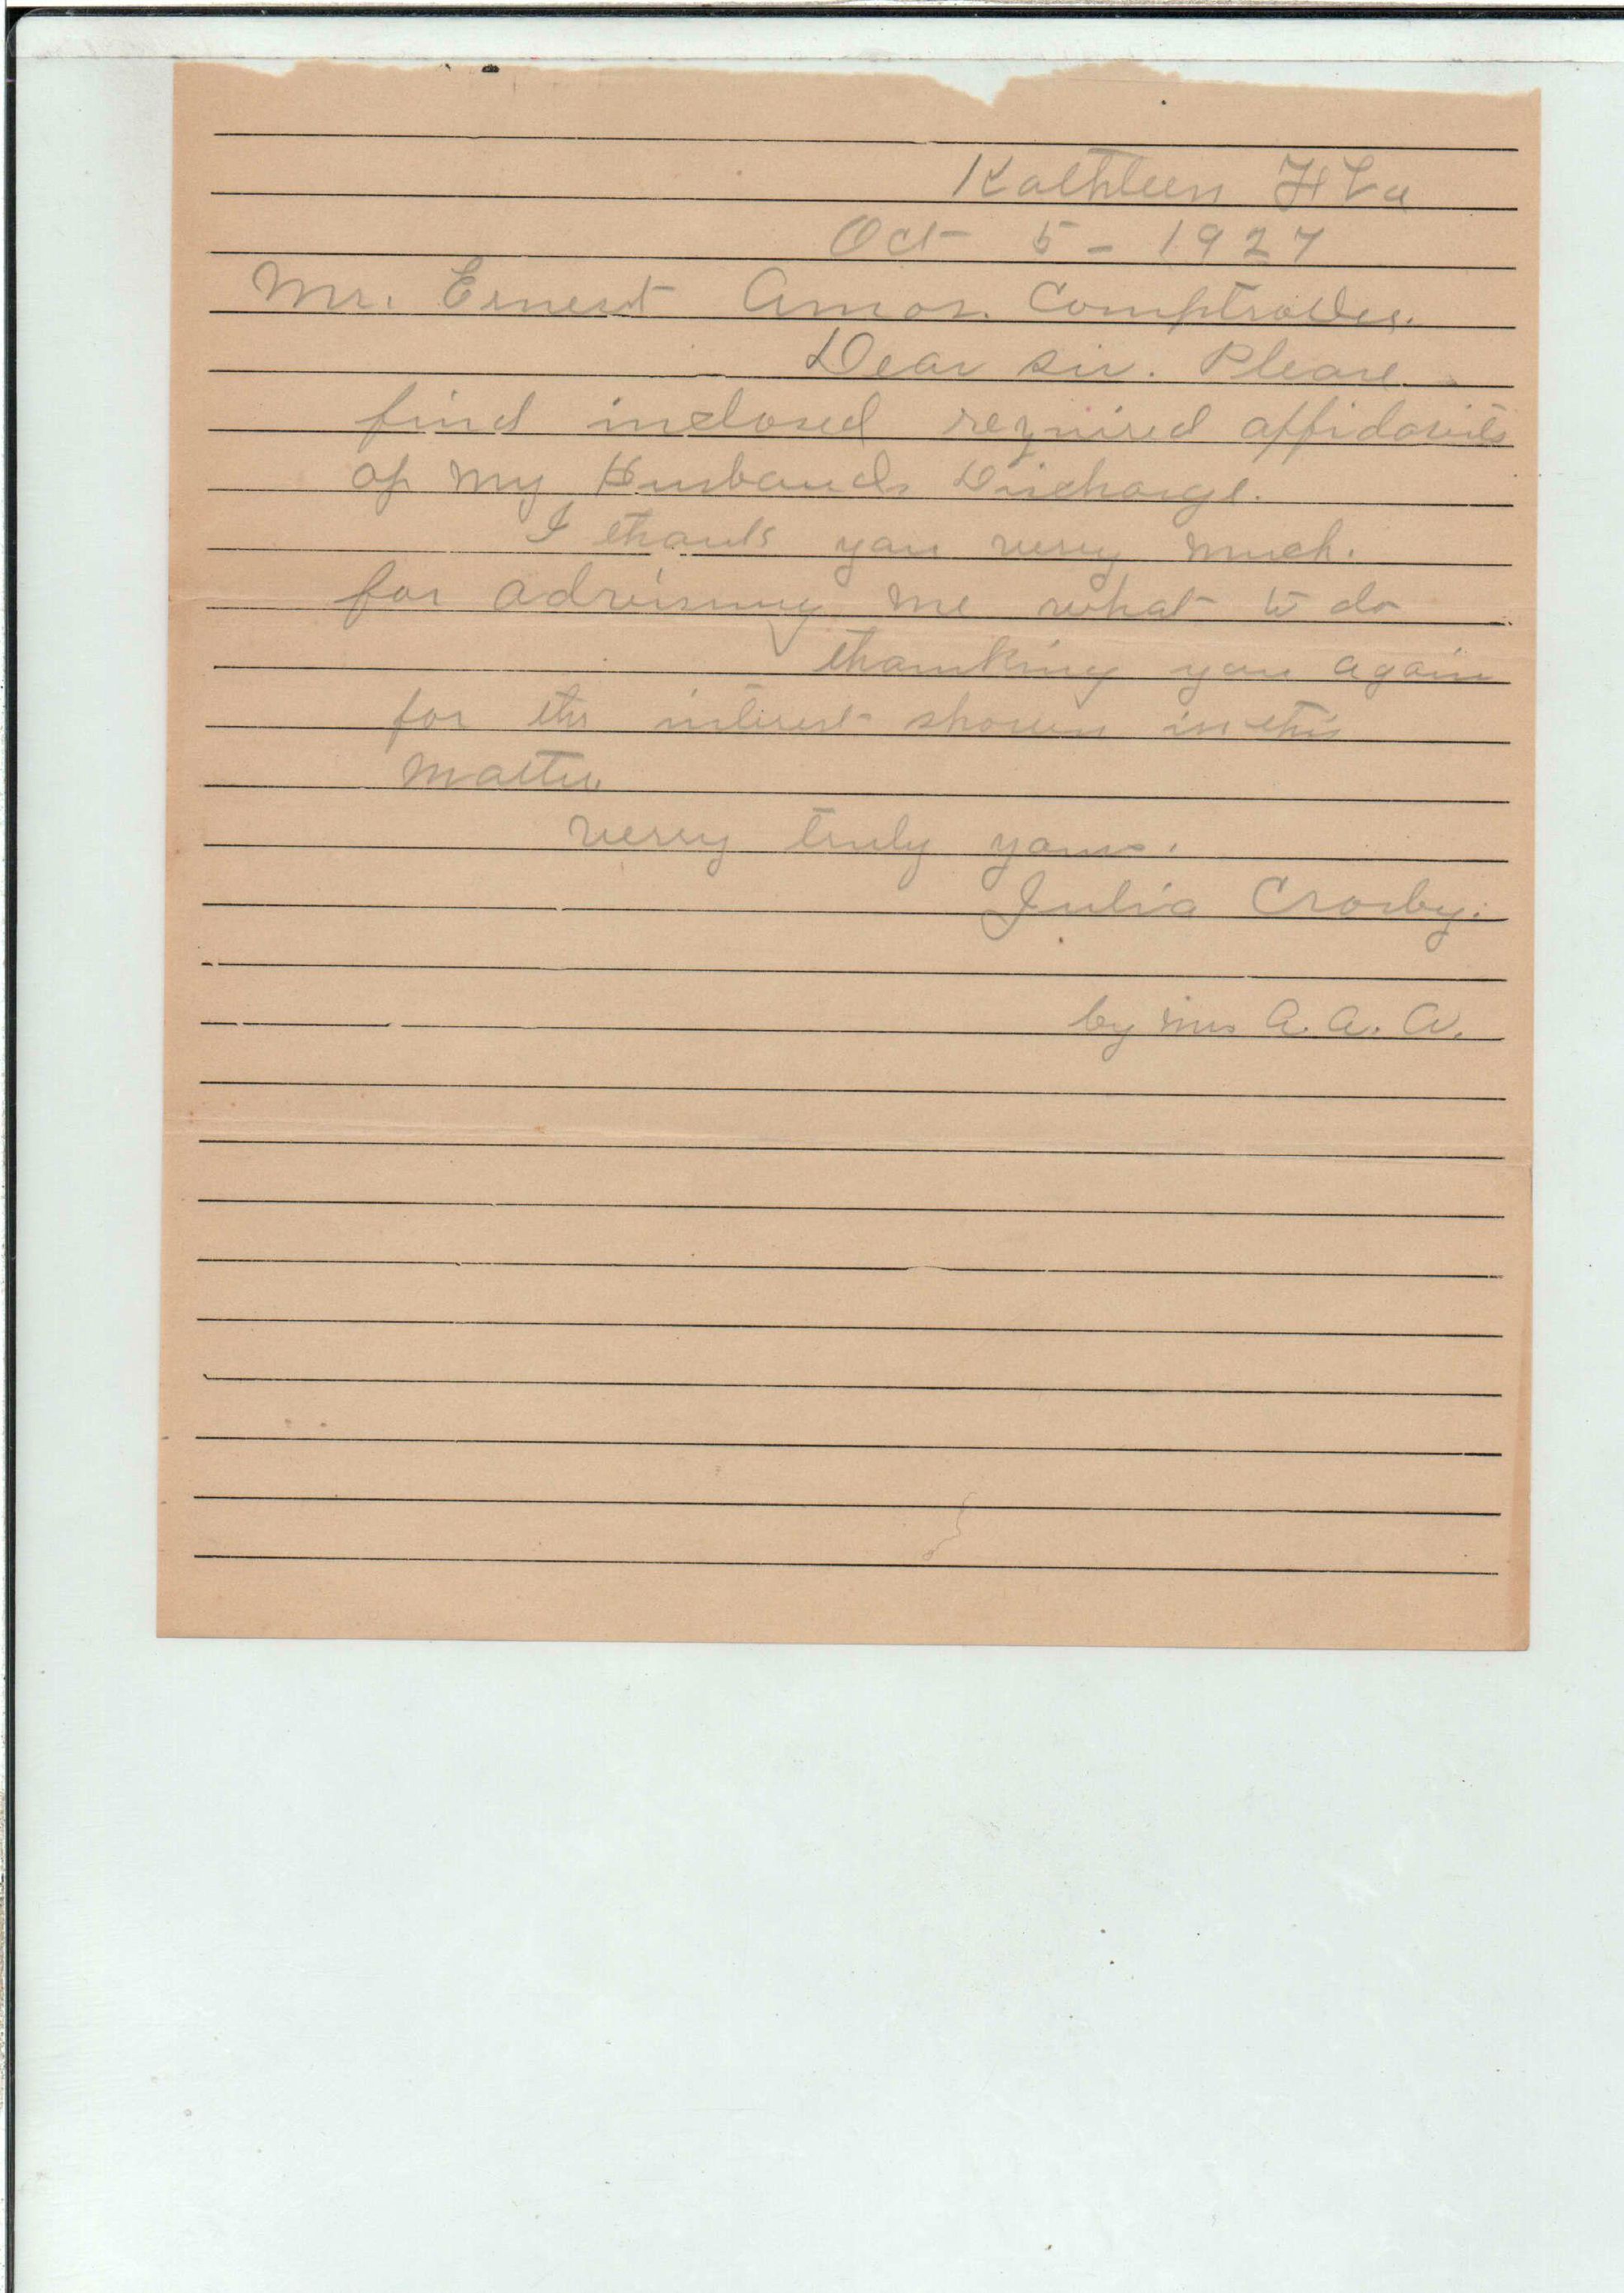 Kathleen Fla
Oct 5 - 1927
Mr. Ernest Amos. Comptroller.
Dear sir. Please
find inclosed required affidavits
of my Husbands Discharge.
I thank you very much.
for advising me what to do
thanking you again
for the interest shown in this
matter.
very truly yours.
Julia Crosby.
by mrs A. A. W.